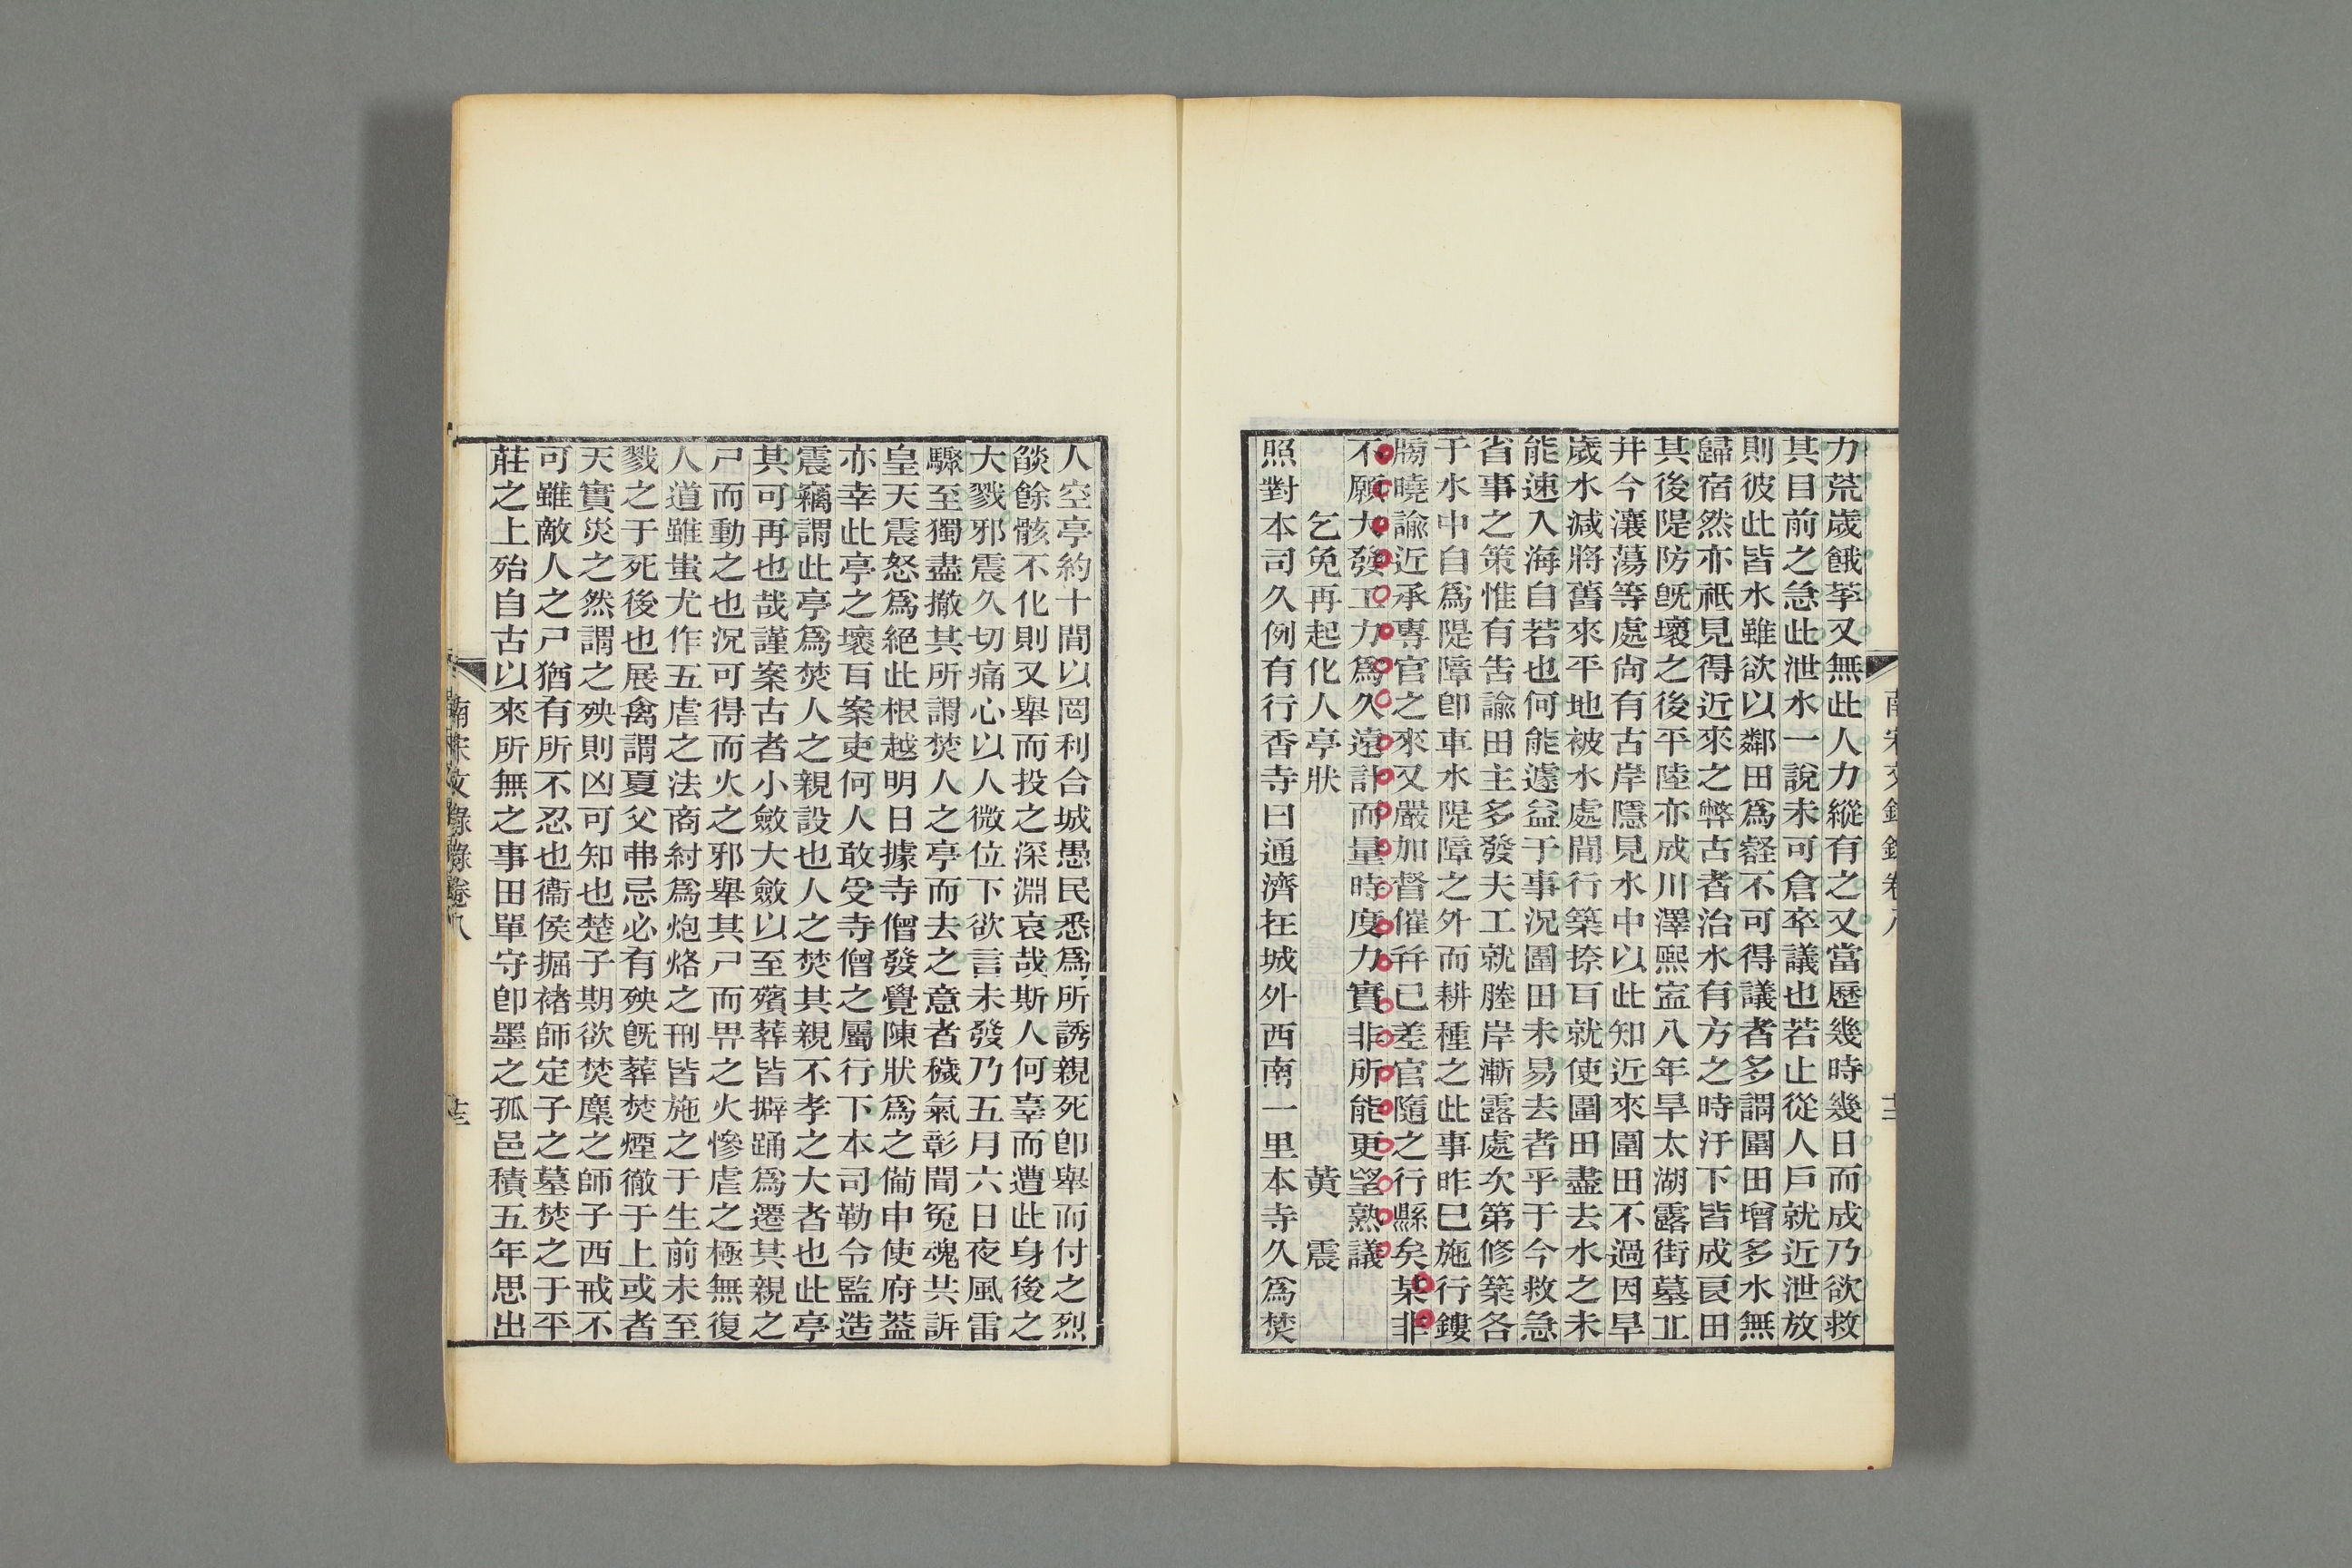 力荒歲餓莩又無此人力縱有之又當歷幾時幾日而成乃欲救
其目前之急此泄水一說未可倉卒議也若止從人戶就近泄放
則彼此皆水雖欲以鄰田爲壑不可得議者多謂圍田增多水無
歸宿然亦祇見得近來之弊古者治水有方之時汙下皆成良田
其後隄防旣壞之後平陸亦成川澤熙寧八年旱太湖露街墓丘
井今瀼蕩等處尙有古岸隱見水中以此知近來圍田不過因旱
歲水減將舊來平地被水處間行築捺耳就使圍田盡去水之未
能速入海自若也何能遽益于事況圍田未易去者乎于今救急
省事之策惟有告諭田主多發夫工就塍岸漸露處次第修築各
于水中自爲隄障卽車水隄障之外而耕種之此事昨已施行鏤
牓曉諭近承專官之來又嚴加督催幷已差官隨之行縣矣某非
不願大發工力爲久遠計而量時度力實非所能更望熟議
乞免再起化人亭狀 黃震
照對本司久例有行香寺曰通濟在城外西南一里本寺久爲焚
南宋文錄錄卷八 十二
人空亭約十間以罔利合城愚民悉爲所誘親死卽舉而付之烈
燄餘骸不化則又舉而投之深淵哀哉斯人何辜而遭此身後之
大戮邪震久切痛心以人微位下欲言未發乃五月六日夜風雷
驟至獨盡撤其所謂焚人之亭而去之意者穢氣彰聞冤魂共訴
皇天震怒爲絕此根越明日據寺僧發覺陳狀爲之備申使府葢
亦幸此亭之壞耳案吏何人敢受寺僧之屬行下本司勒令監造
震竊謂此亭爲焚人之親設也人之焚其親不孝之大者也此亭
其可再也哉謹案古者小斂大斂以至殯葬皆擗踊爲遷其親之
尸而動之也況可得而火之邪舉其尸而畀之火慘虐之極無復
人道雖蚩尤作五虐之法商紂爲炮烙之刑皆施之于生前未至
戮之于死後也展禽謂夏父弗忌必有殃旣葬焚煙徹于上或者
天實災之然謂之殃則凶可知也楚子期欲焚麇之師子西戒不
可雖敵人之尸猶有所不忍也衞侯掘褚師定子之墓焚之于平
莊之上殆自古以來所無之事田單守卽墨之孤邑積五年思出
南宋文錄錄卷八 十三